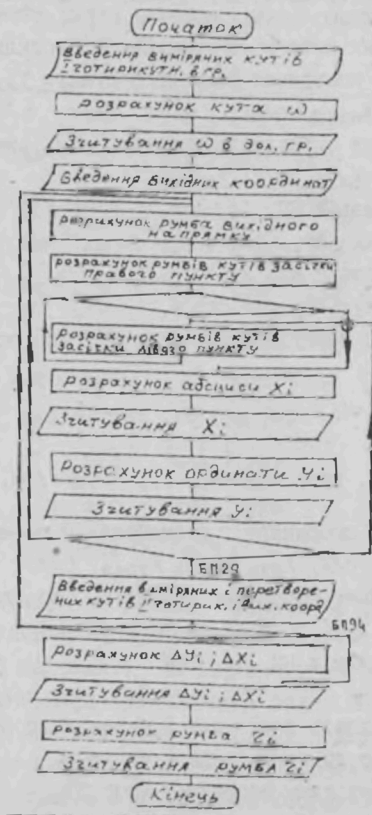 Початок
Введення виміряних кутів
I чотирикутн. в гр.
Розрахунок кута ω
Зчитування ω в дол. гр.
Введення вихідних координат
Розрахунок румба вихідного
напрямку
розрахунок румбів кутів засічки
правого пункту
розрахунок румбів кутів
засічки лівого пункту
Розрахунок абсциси Xi
Зчитування Xi
Розрахунок ординати Yi
Зчитування Yi
БП29
Введення виміряних і перетворе-
них кутів II чотирик. і вих. коорд
БП94
Розрахунок ΔYi ; ΔXi
Зчитування ΔYi ; ΔXi
Розрахунок румба τi
Зчитування румба τi
Кінець